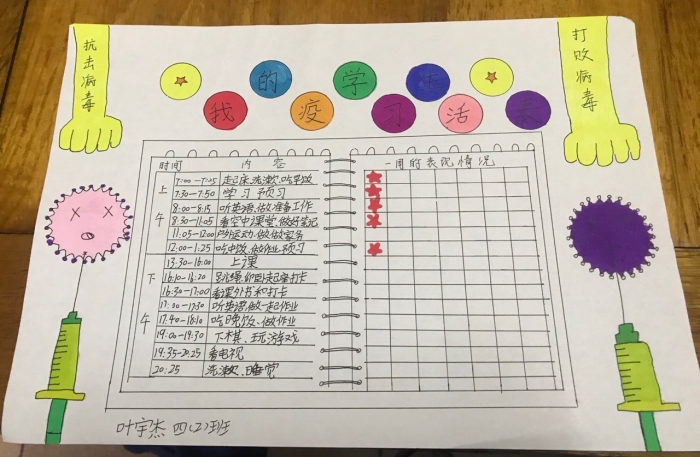 抗击病毒
打败病毒
我的疫学习生活表
时间 内容 一周的表现情况
上午
7:00—7:25 起床、洗漱、吃早饭
7:30—7:50 学习预习
8:00—8:15 听英语、做准备工作
8:30—11:05 看空中课堂、做好笔记
11:05—12:00 户外运动、做做家务
12:00—1:25 吃中饭、做作业、预习
下午
13:30—16:00 上课
16:10—16:20 跳绳、仰卧起坐打卡
16:30—17:00 看课外书和打卡
17:00—17:30 听英语、做一起作业
17:40—18:10 吃晚饭、做作业
19:00—19:30 下棋、玩游戏
19:35—20:25 看电视
20:25 洗漱、睡觉
叶宇杰 四(2)班